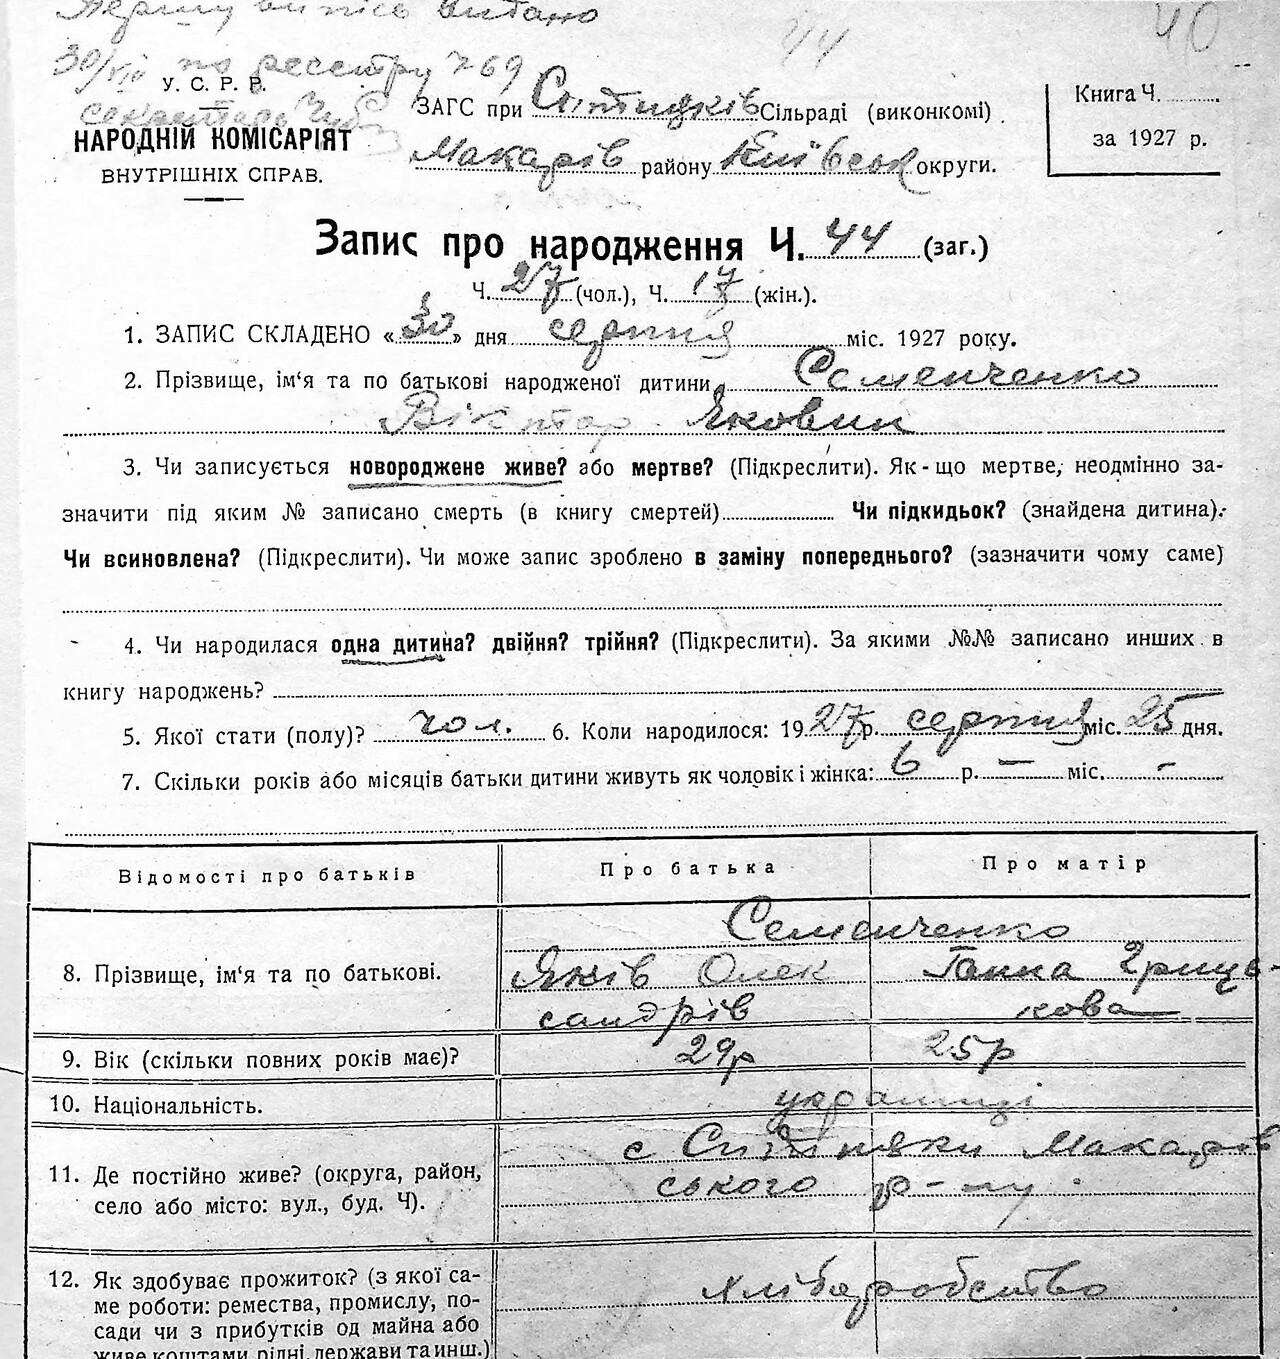 Першу випись видано
44
40
30/VIII по реєстру 769
У. С. Р. Р.
НАРОДНІЙ КОМІСАРІЯТ
ВНУТРІШНІХ СПРАВ.
ЗАГС при Сітняків Сільраді (виконкомі)
Макарів району Київськ округи.
Книга Ч.
за 1927 р.
Запис про народження Ч. 44 (заг.)
Ч. 27 (чол.), Ч. 17 (жін.).
1. ЗАПИС СКЛАДЕНО «30» дня серпня міс. 1927 року.
2. Прізвище, ім‘я та по батькові народженої дитини Семенченко
Віктор Яковин
3. Чи записується новороджене живе? або мертве? (Підкреслити). Як-що мертве, неодмінно за-
значити під яким № записано смерть (в книгу смертей) Чи підкидьок? (знайдена дитина).
Чи всиновлена? (Підкреслити). Чи може запис зроблено в заміну попереднього? (зазначити чому саме)
4. Чи народилася одна дитина? двійня? трійня? (Підкреслити). За якими №№ записано инших в
книгу народжень?
5. Якої стати (полу)? чол. 6. Коли народилося: 1927 р. серпня міс. 25 дня.
7. Скільки років або місяців батьки дитини живуть як чоловік і жінка: 6 р. — міс. -
Відомості про батьків Про батька Про матір
Семенченко
8. Прізвище, ім‘я та по батькові. Яків Олек Ганна Гриць-
сандрів кова
9. Вік (скільки повних років має)? 29р 25р
10. Національність. українці
с Ситняки Макарів
11. Де постійно живе? (округа, район, ського р-ну
село або місто: вул., буд. Ч).
12. Як здобуває прожиток? (з якої са- хліборобство
ме роботи: ремества, промислу, по-
сади чи з прибутків од майна або
живе коштами рідні, держави та инш.)